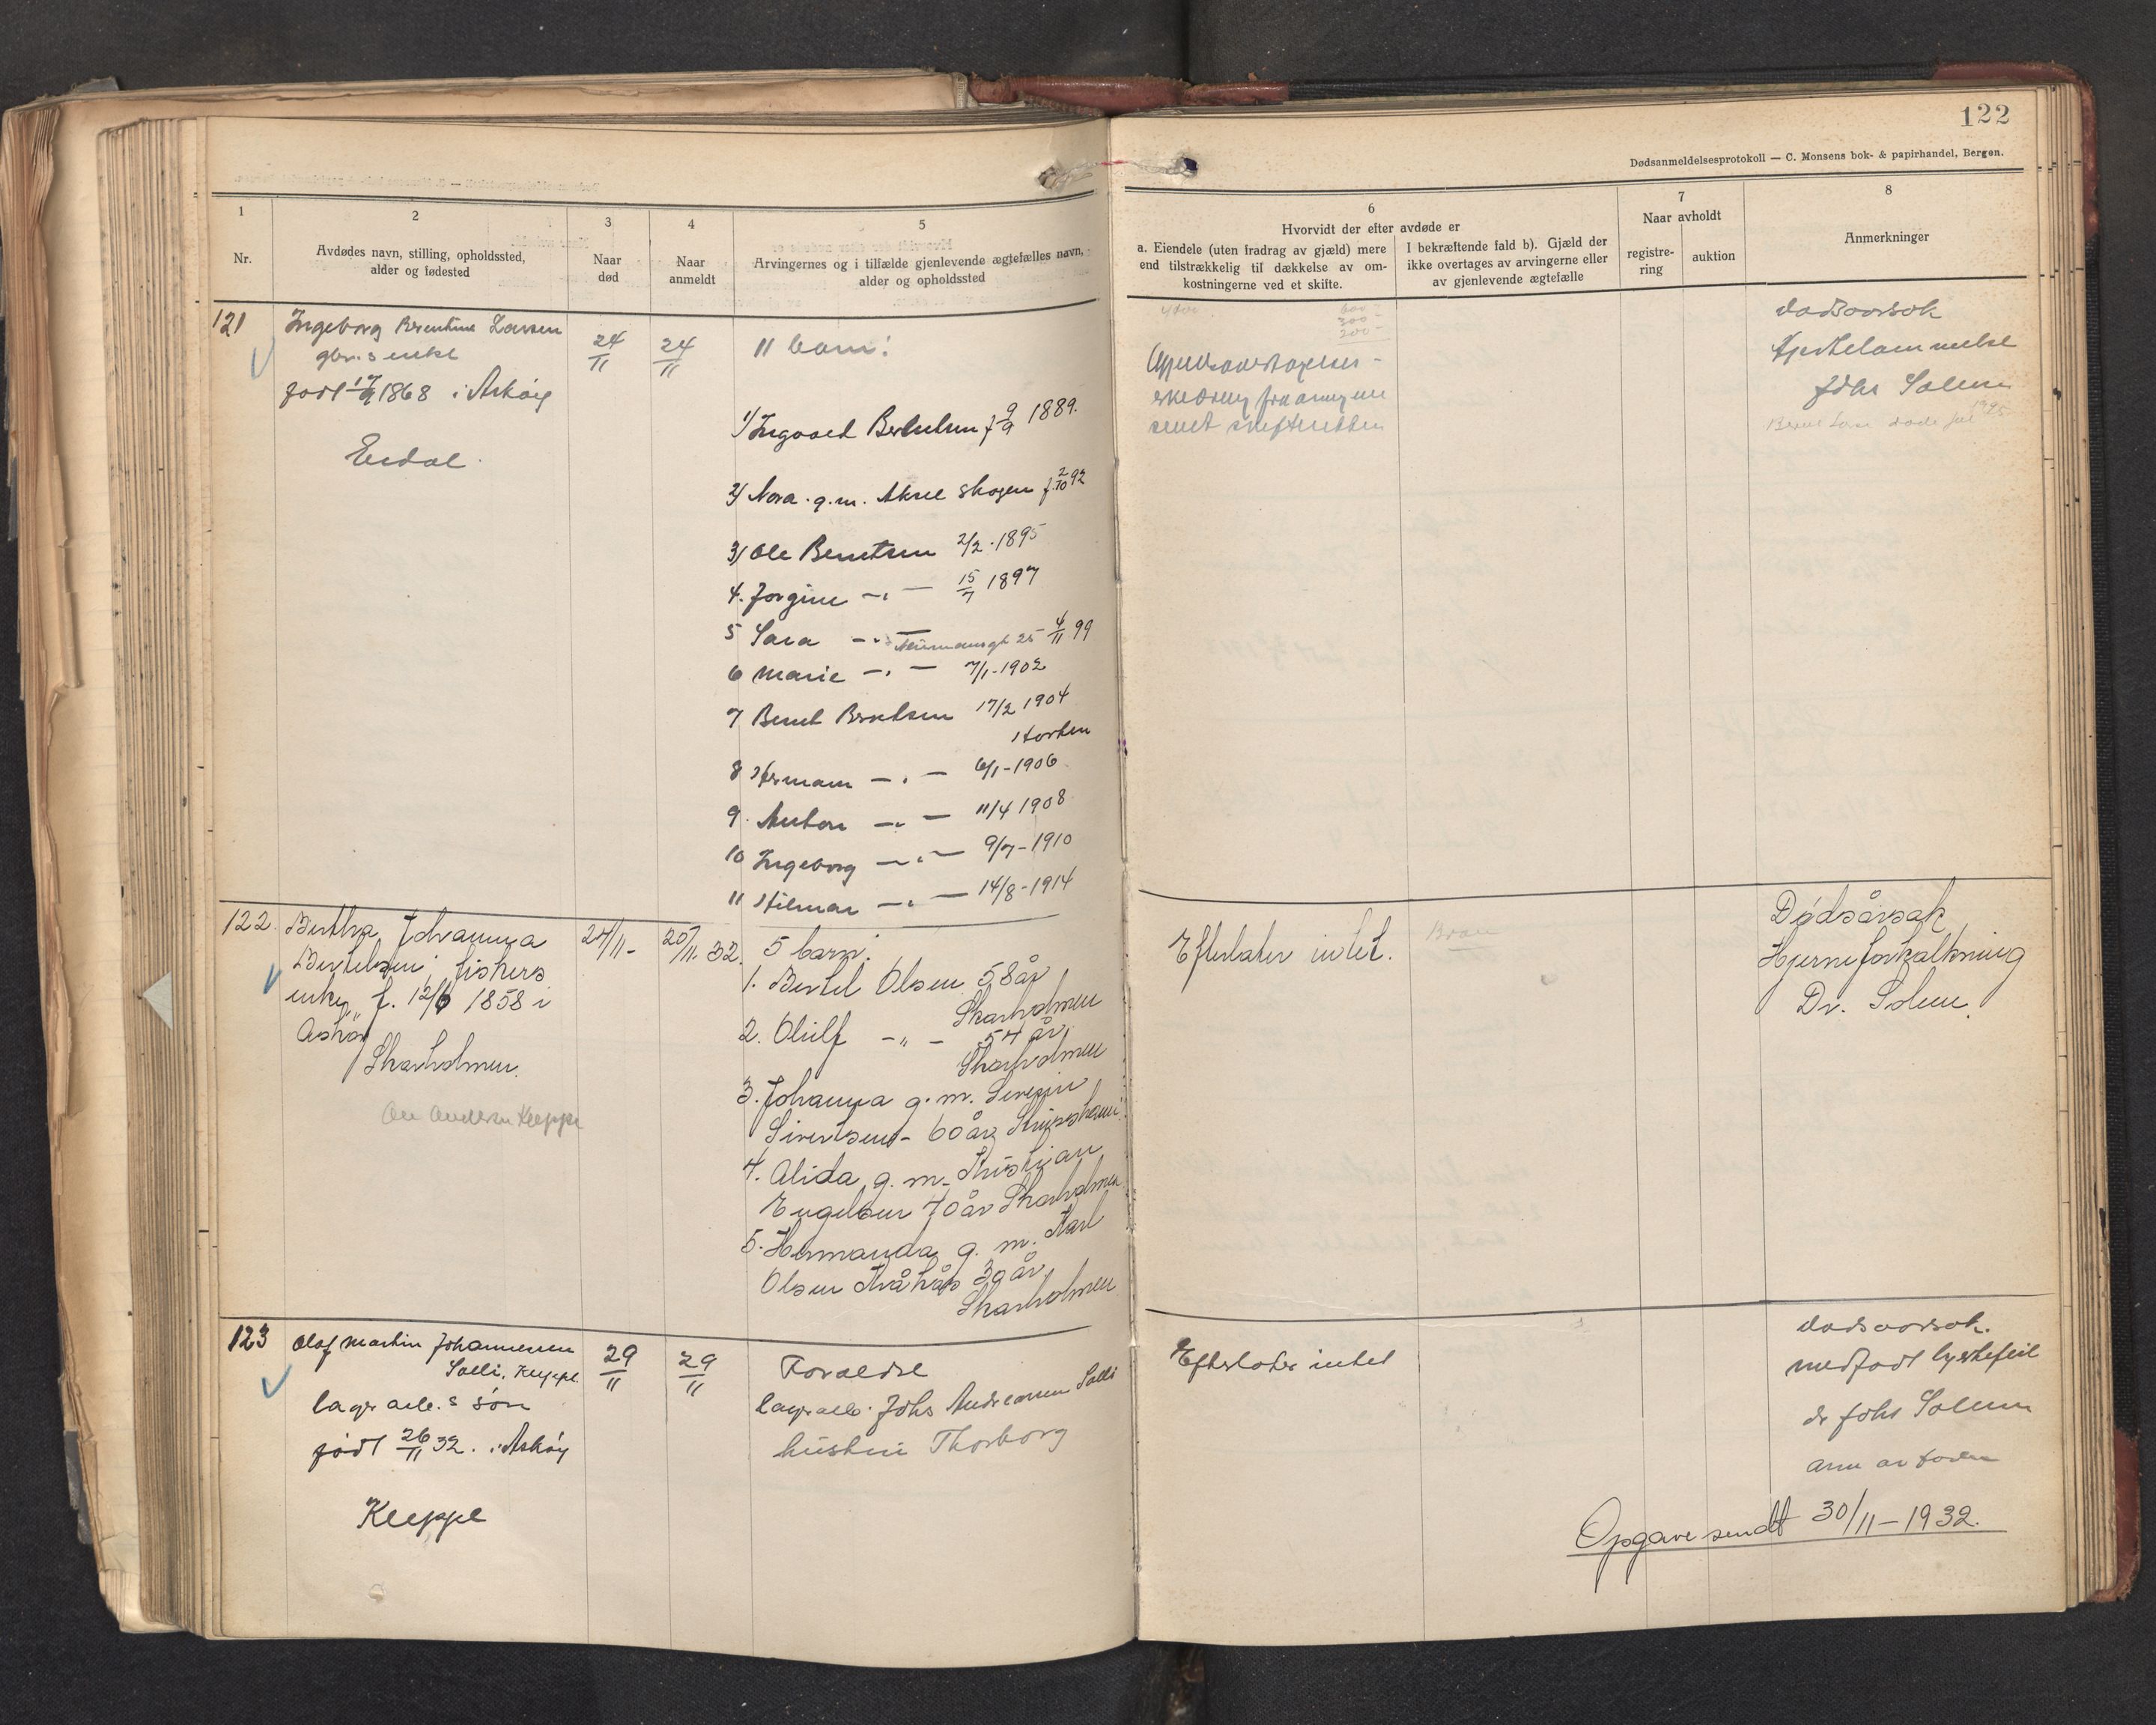 122
Dødsanmeldelsesprotokoll — C. Monsens bok- & papirhandel, Bergen.
1
Nr.
2
Avdødes navn, stilling, opholdssted,
alder og fødested
3
Naar
død
4
Naar
anmeldt
5
Arvingernes og i tilfælde gjenlevende ægtefælles navn,
alder og opholdssted
6
Hvorvidt der efter avdøde er
a. Eiendele (uten fradrag av gjæld) mere
end tilstrækkelig til dækkelse av om-
kostningerne ved et skifte.
I bekræftende fald b). Gjæld der
ikke overtages av arvingerne eller
av gjenlevende ægtefælle
7
Naar avholdt
registre-
ring
auktion
8
Anmerkninger
121
Ingeborg Berntine Larsen
gbr.s enke
født 17/9 1868 i Askøy
Erdal
24/11
24/11
11 barn:
1/ Ingvald Berntsen f 9/9 1889.
2/ Nora g.m. Aksel Skogen f. 2/10 92
3/ Ole Berntsen 2/2 1895
4. Jorgine — " — 15/7 1897
5 Sara — " — 25 4/11 99
6 Marie — " — 7/1-1902
7 Bernt Berntsen 17/2 1904
Horten
8 Herman — " — 6/1-1906
9. Anton — " — 11/4 1908
10 Ingeborg — " — 9/7-1910
11 Hilmar — " — 14/8-1914
600
300-
200-
skifteretten
dødsaarsak
Hjertelammelse
Johs Solem
122.
Bertha Johanna
Bertelsen, fiskers
enke, f. 12/6 1858 i
Askøy
Skarholmen.
Ole Andersen Kleppe
24/11-
25/11. 32.
5 barn:
1. Bertel Olsen 58 år
Skarholmen
2. Oluf - " - 54 år
Skarholmen
3. Johanna g. m. Severin
Sivertsen - 60 år
4. Alida, g. m. Kristian
Engelsen 70 år Skarholmen
5. Hermanda g. m. Karl
Olsen 30 år
Skarholmen
Efterlater intet.
Dødsårsak
Hjerneforkalkning
Dr. Solem.
123
Olaf Martin Johannessen
Solli, Kleppe
lagerarb.s søn
født 26/11 32. i Askøy
Kleppe
29/11
29/11
Foreldre
lagerarb. Johs Andreassen Solli
hustru Thorborg
Efterlater intet
dødsaarsak.
medfødt hjertefeil
dr Johs Solem
anm av faderen
Opgave sendt 30/11-1932.